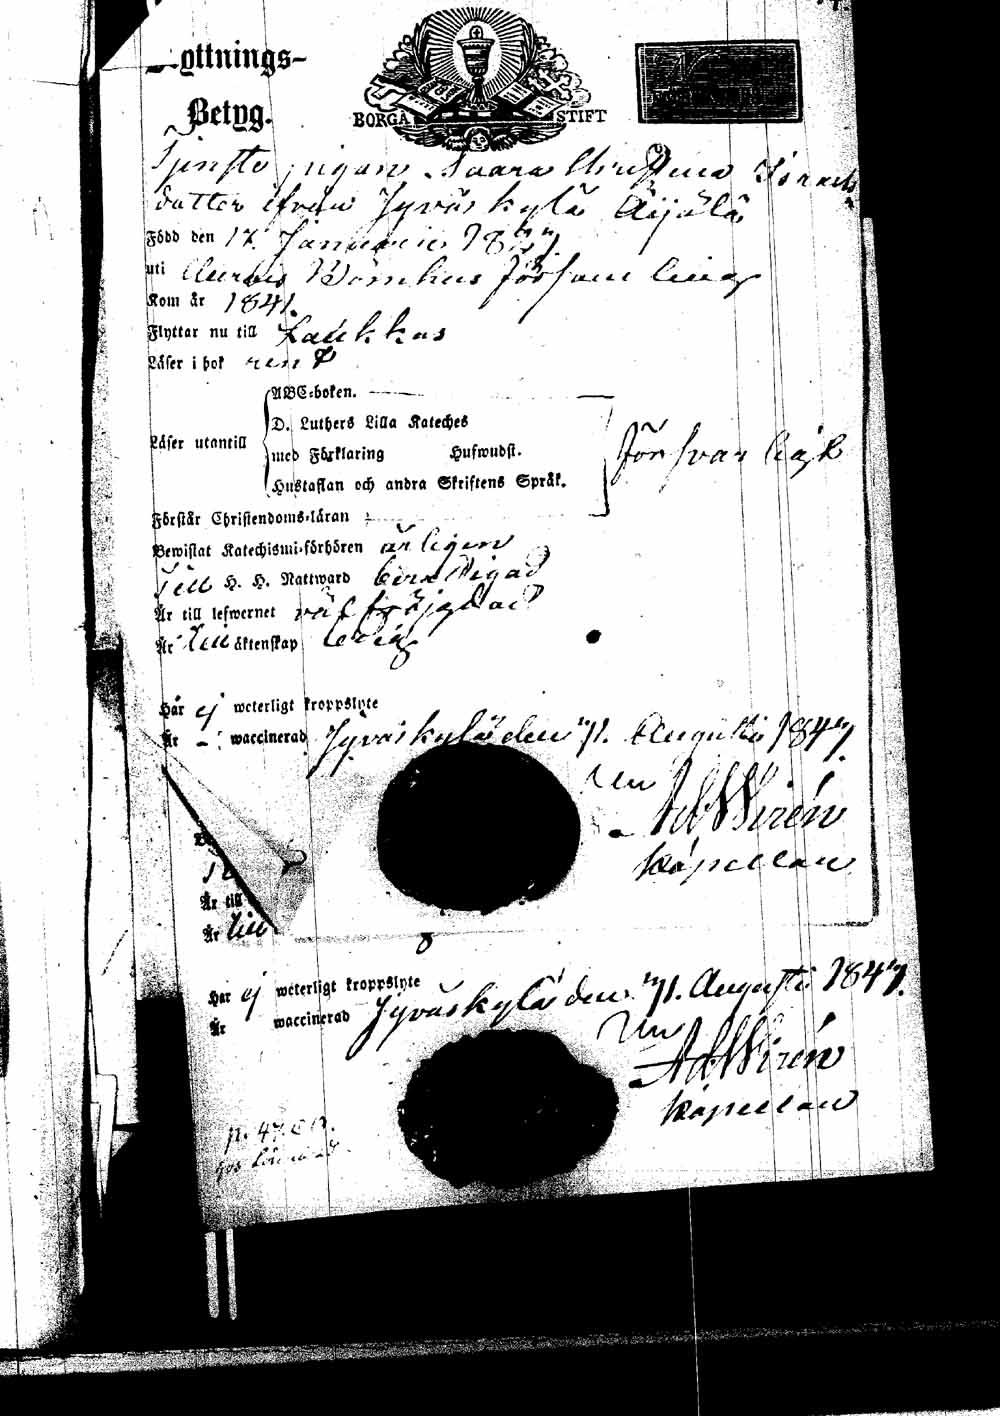 yttnings-
Betyg.
BORGÅ STIFT
Tjenste pigan Saara Christina Israels
dotter ifrån Jyväskylä Äijälä
Född den 17. Januarii 18
uti
Kom år 1841.
Flyttar nu till Laukkas
Läser i bok rent
Läser utantill
ABC-boken.
D. Luthers Lilla Kateches
med Förklaring Hufwudst.
Hustaflan och andra Skriftens Språk.
försvarligt
Förstår Christendoms-läran
Bewistat Katechismi-förhören årligen
Till H. H. Nattward berättigad
Är till lefwernet välfräjdad
Är till äktenskap ledig
Har ej weterligt kroppslyte
Är - waccinerad Jyväskylä den 71. Augusti 1847.
Ad Wirén
Kapellan
Är till
Är till
Har ej weterligt kroppslyte
Är waccinerad Jyväskylä den 71. Augusti 1847.
Ad Wirén
Kapellan
p. 47.